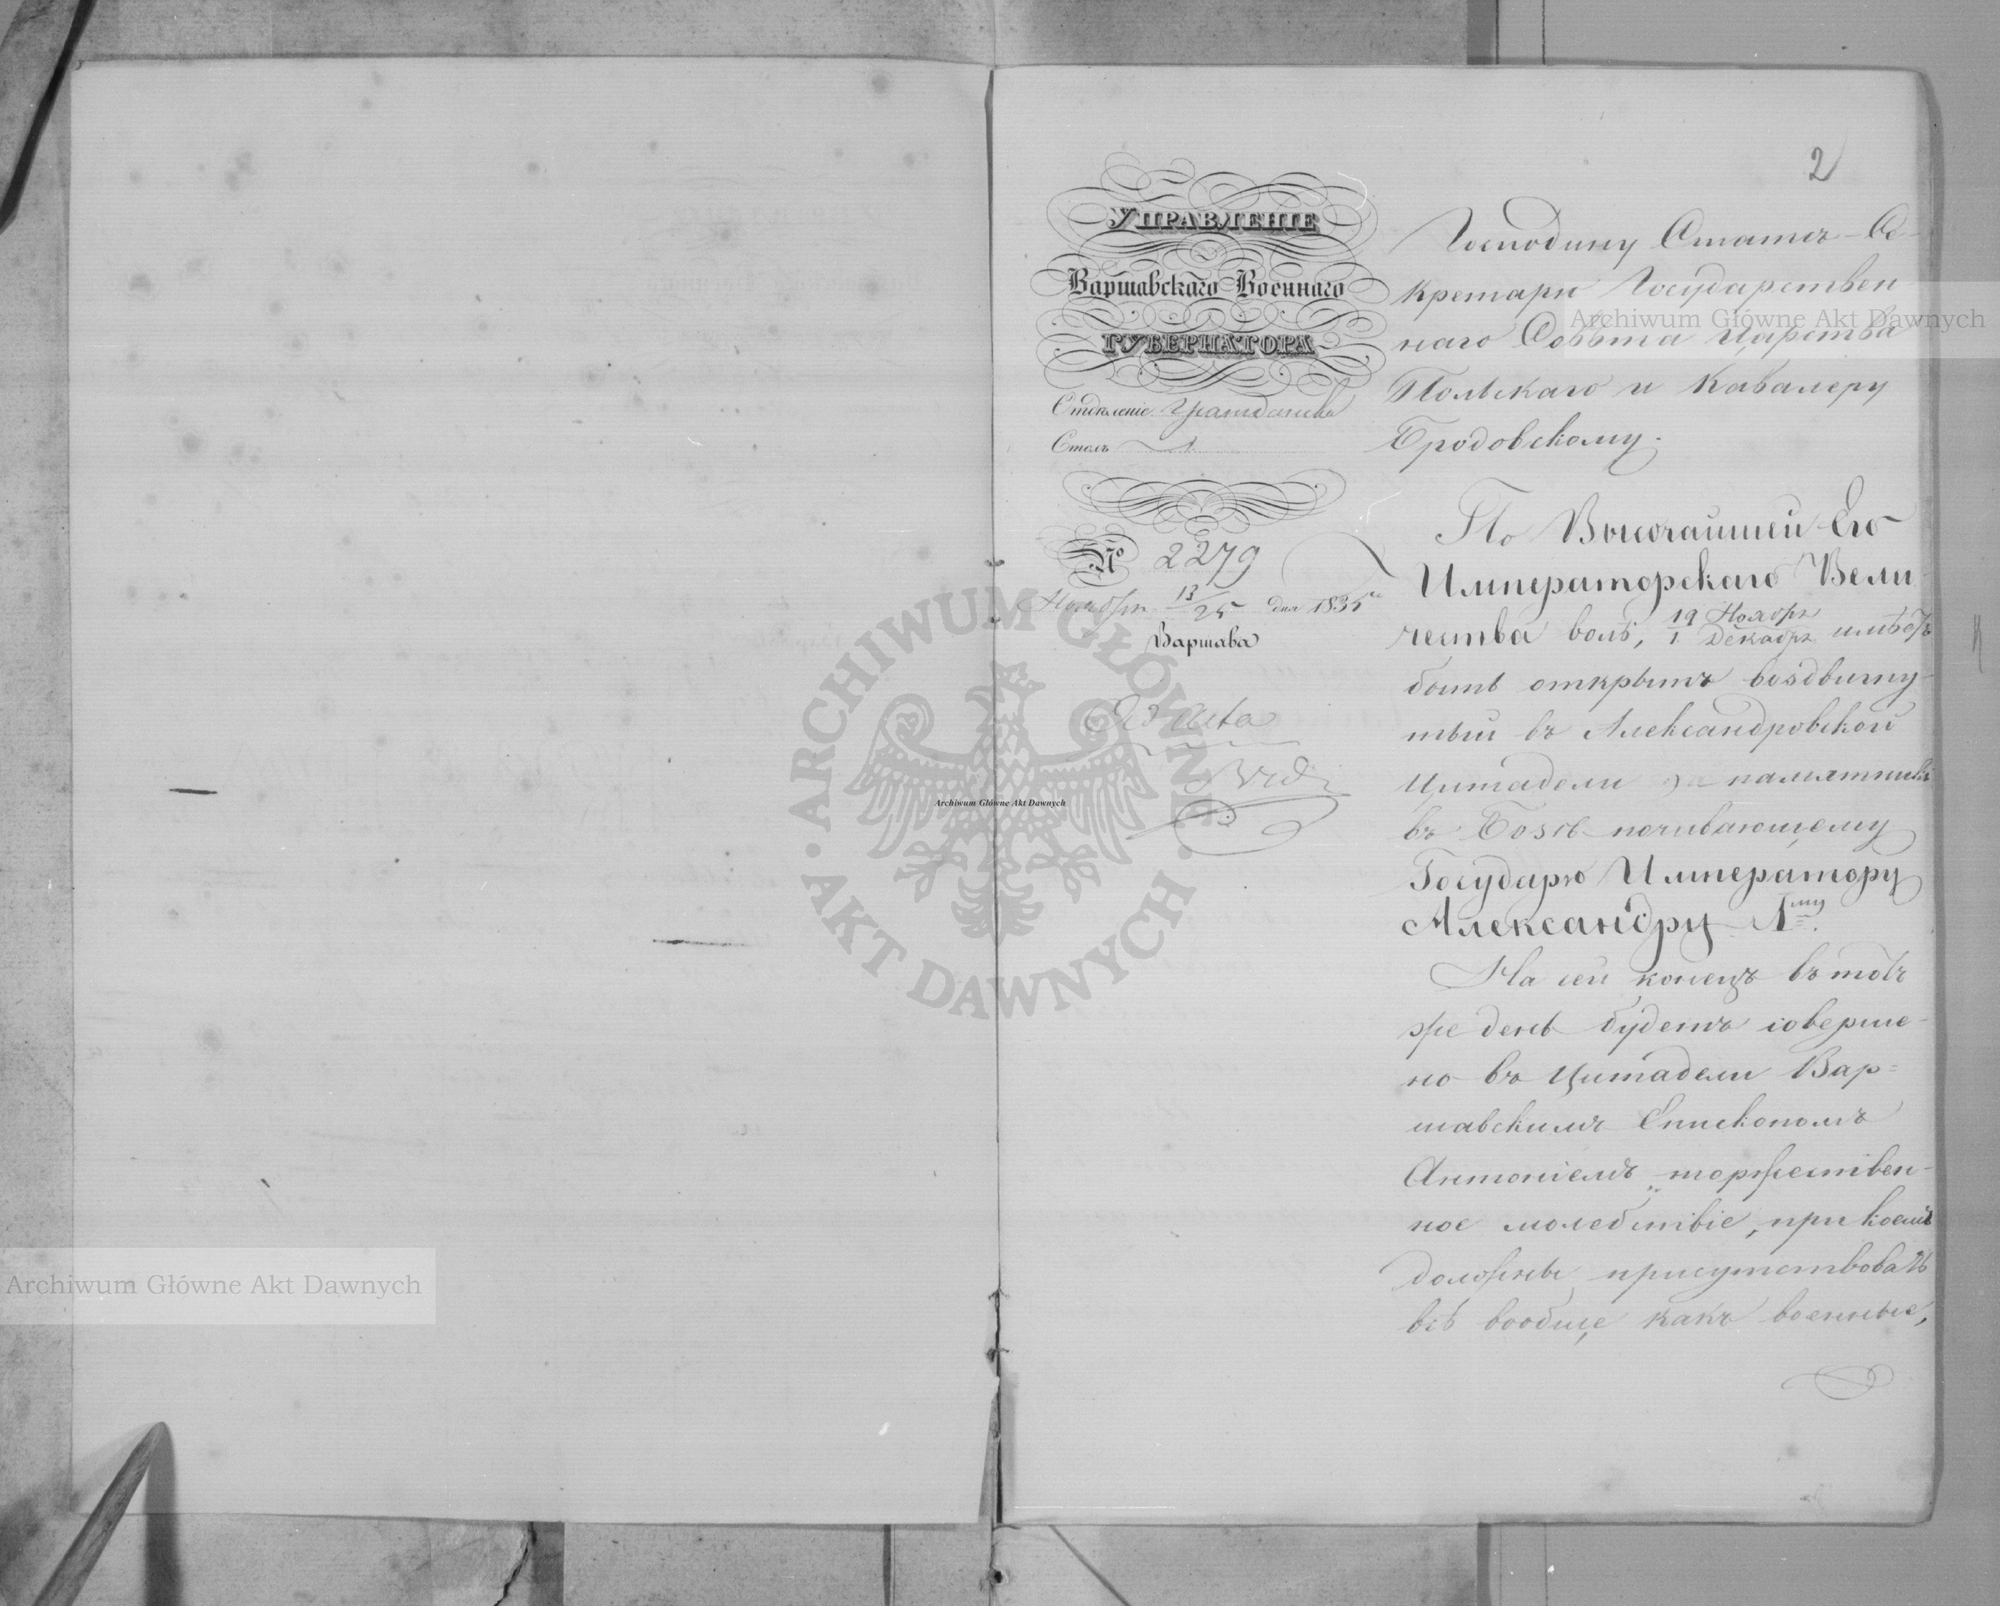 2
УПРАВЛЕНІЕ
Варшавскаго Военнаго
ГУБЕРНАТОРА
Отдѣленіе Гражданское
Столъ 1.
№ 2279
Ноября 13/25 дня 1835 го
Варшава
Ad Acta
Господину Статсъ-Се-
кретарю Государствен-
наго Совѣта Царства
Польскаго и Кавалеру
Бродовскому.
По Высочайшей Его
Императорскаго Вели-
чества волѣ, 19 Ноября / 1 Декабря имѣетъ
быть открытъ воздвигну-
тый въ Александровской
Цитадели памятникъ
въ Бозѣ почивающему
Государю Императору
Александру 1му.
На сей конецъ въ тотъ
же день будетъ соверше-
но въ Цитадели Вар-
шавскимъ Епископомъ
Антоніемъ торжествен-
ное молебствіе, при коемъ
должны присутствовать
всѣ вообще какъ военные,
Archiwum Główne Akt Dawnych
Archiwum Główne Akt Dawnych
Archiwum Główne Akt Dawnych
ARCHIWUM GŁÓWNE · AKT DAWNYCH ·